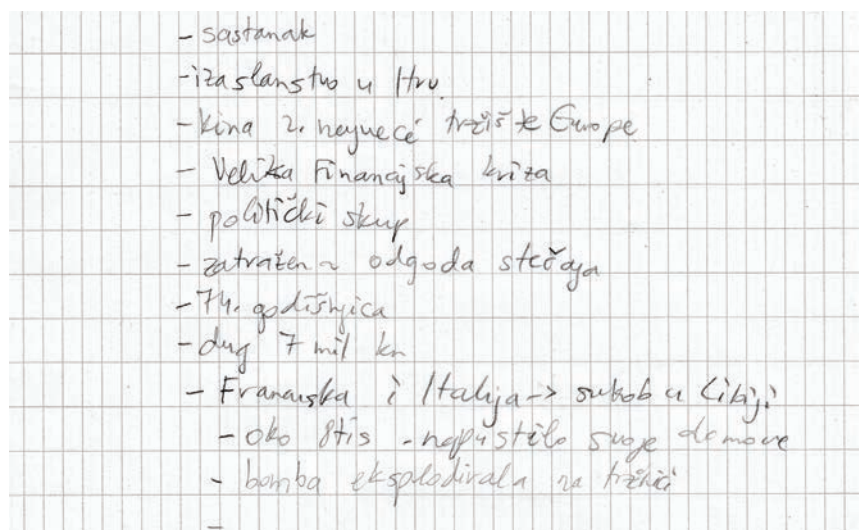 - sastanak
- izaslanstvo u Hrv.
- Kina 2. najveće tržište Europe
- Velika Financijska kriza
- politički skup
- zatražena odgoda stečaja
- 74. godišnjica
- dug 7 mil kn
- Francuska i Italija -> sukob u Libiji
- oko 8 tis - napustilo svoje domove
- bomba eksplodirala na tržnici
-